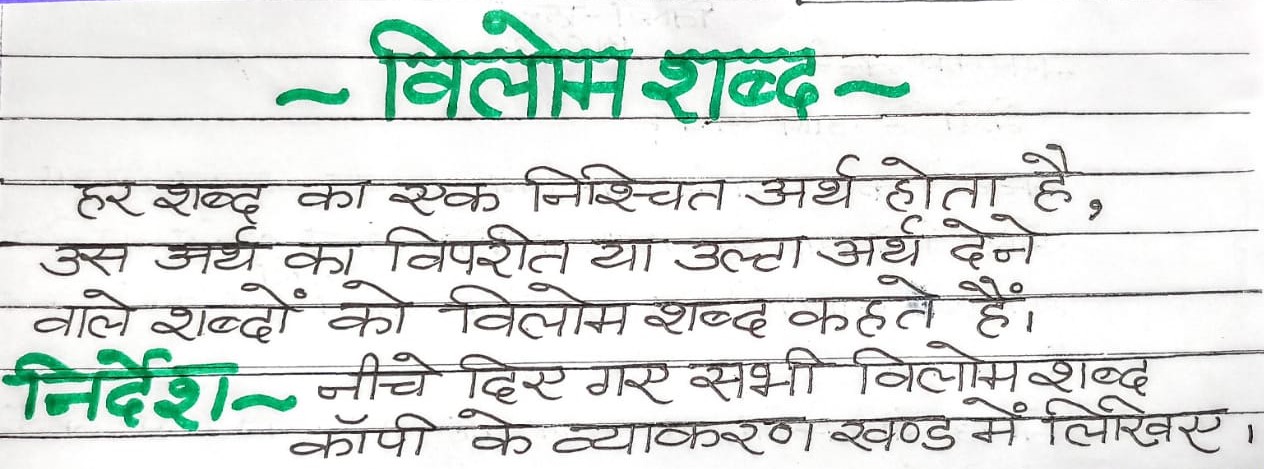 ~ विलोम शब्द ~
हर शब्द का एक निश्चित अर्थ होता है,
उस अर्थ का विपरीत या उल्टा अर्थ देने
वाले शब्दों को विलोम शब्द कहते हैं।
निर्देश ~ नीचे दिए गए सभी विलोम शब्द
कॉपी के व्याकरण खण्ड में लिखिए।